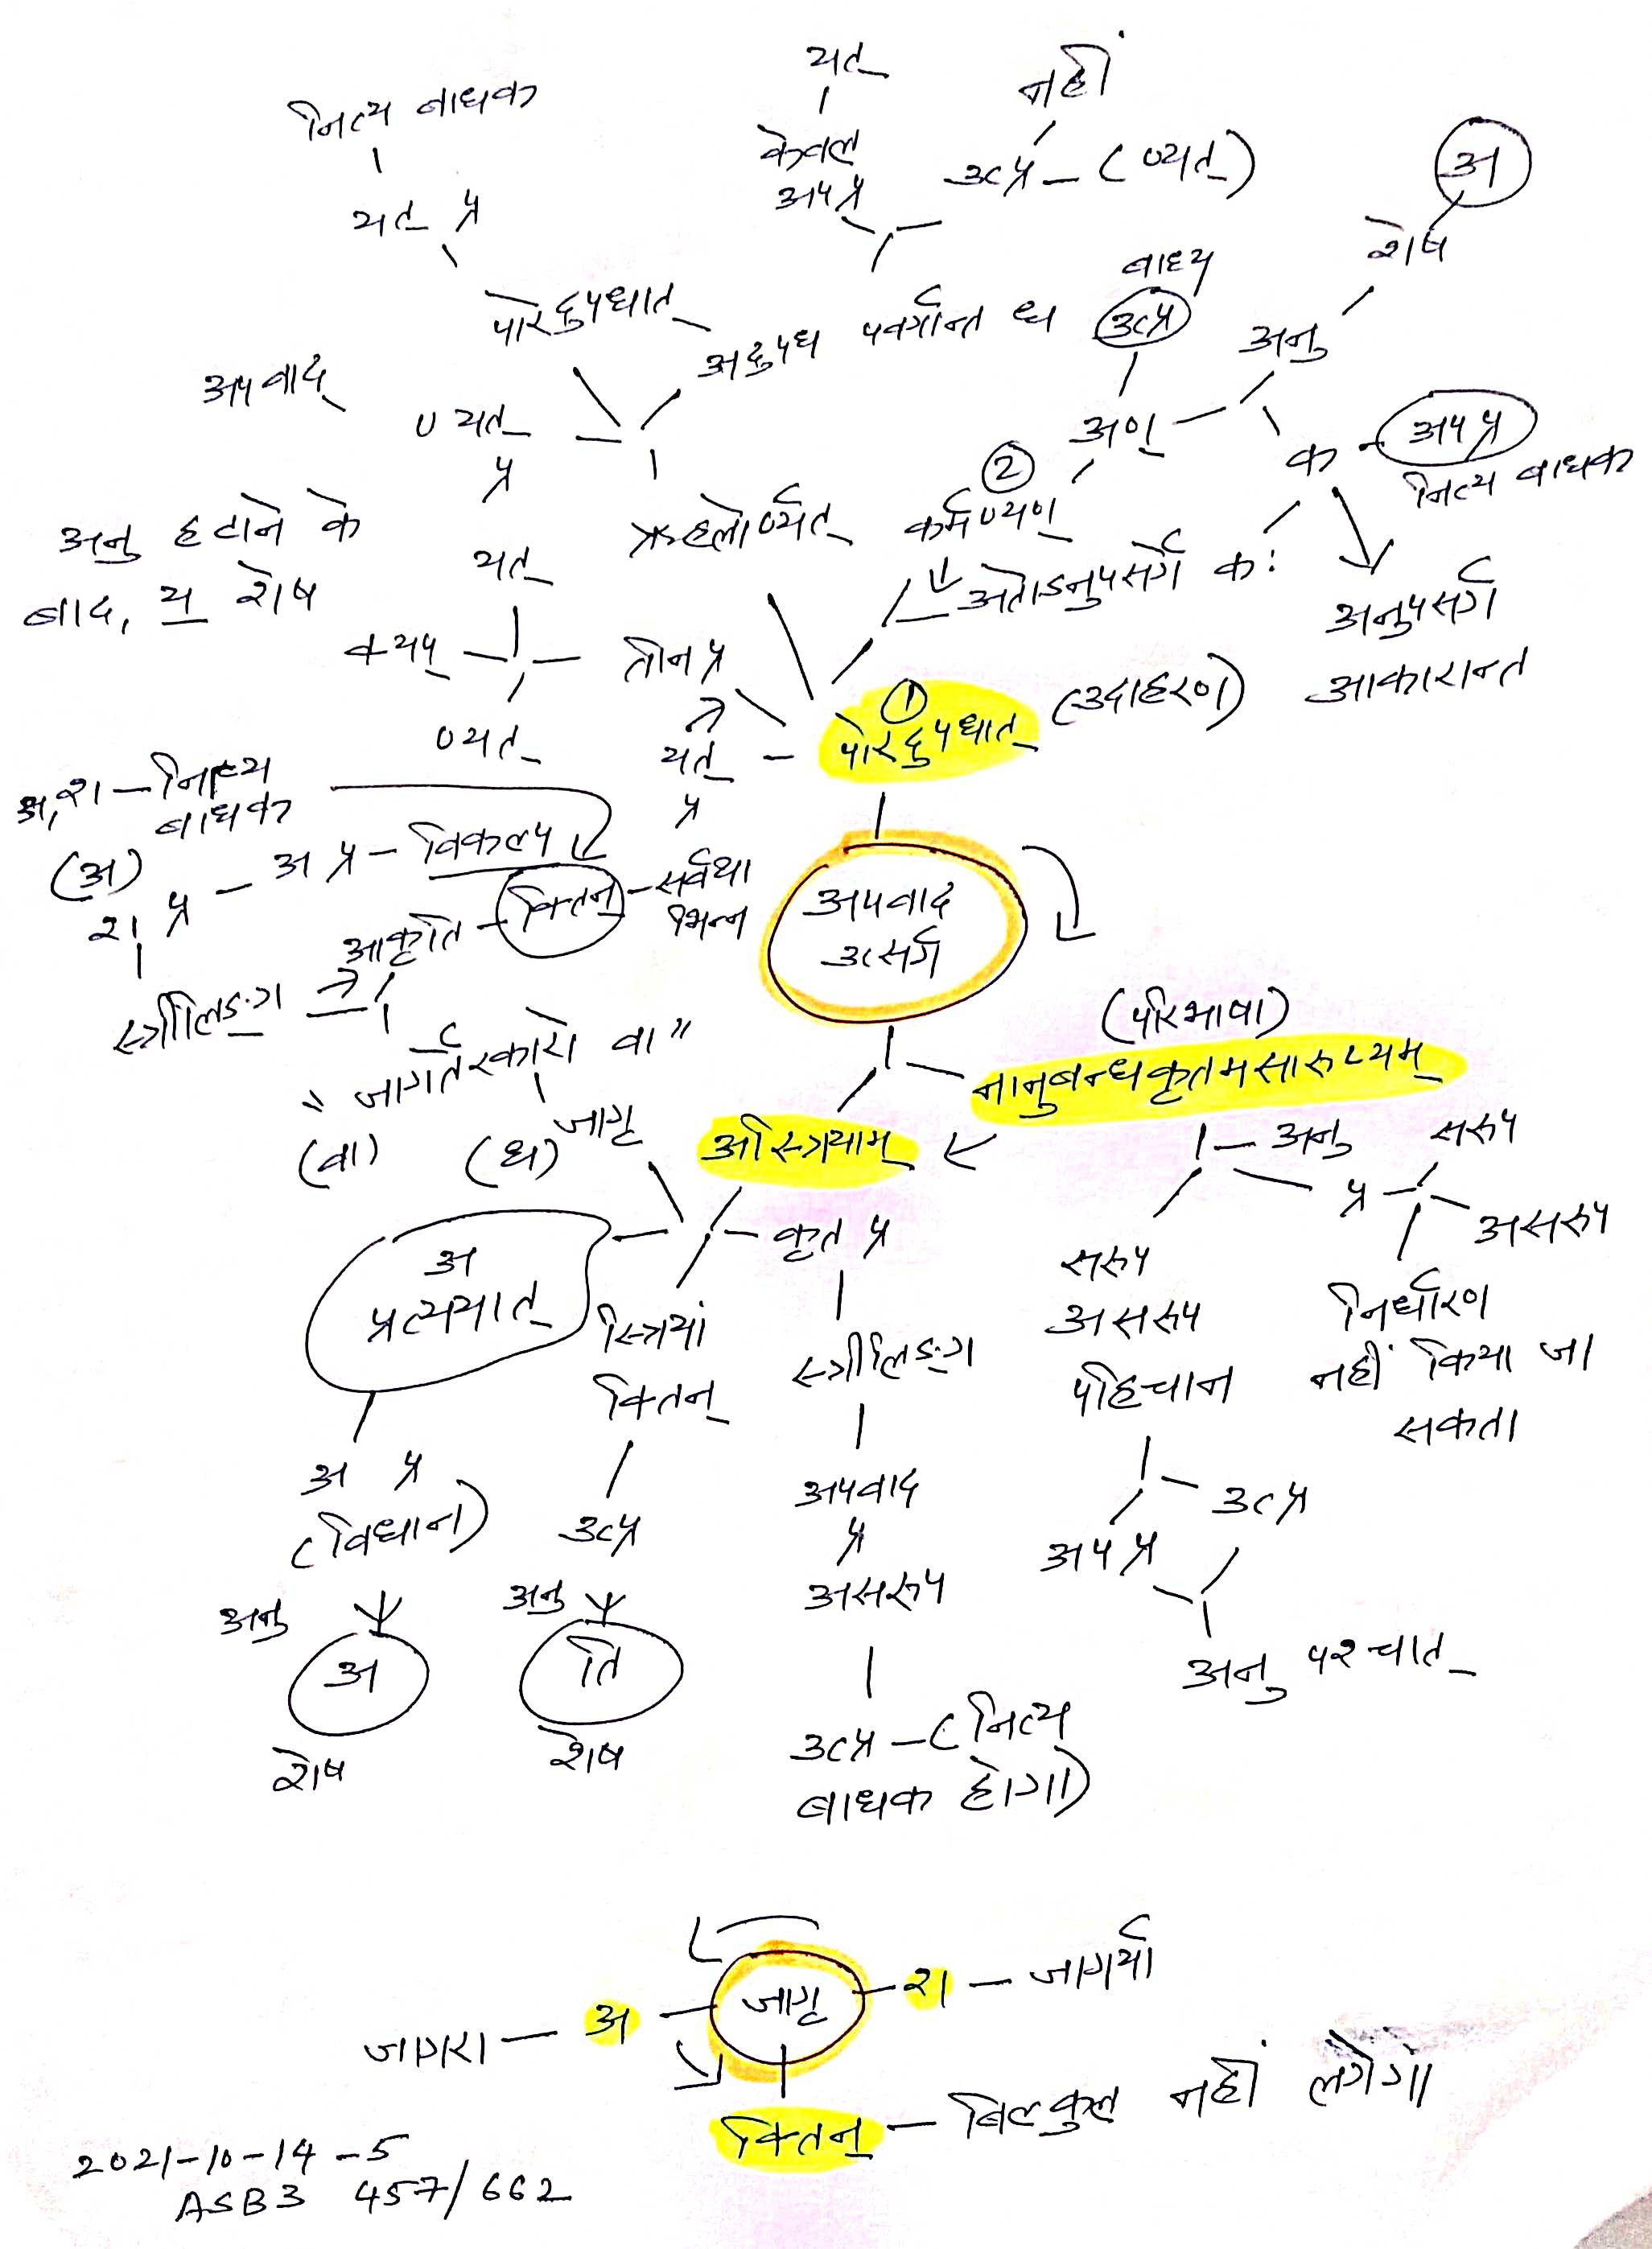 यत्
नहीं
नित्य बाधक
केवल
अप प्र
उत्प्र – (ण्यत्)
अ
यत् प्र
शेष
बाध्य
पोरदुपधात्
अदुपध पवर्गान्त ध
उत्प्र
अनु
अपवाद्
ण्यत्
प्र
अण्
अप प्र
क
नित्य बाधक
②
अनु हटाने के
बाद, य शेष
यत्
ऋहलोर्ण्यत्
कर्मण्यण्
अतोऽनुपसर्ग कः
अनुपसर्ग
आकारान्त
क्यप्
तीन प्र
ण्यत्
①
पोरदुपधात् (उदाहरण)
यत्
प्र
अ, श – नित्य
बाधक
(अ)
श प्र – अ प्र – विकल्प
आकृति – क्तिन् – सर्वथा
भिन्न
स्त्रीलिङ्ग
अपवाद
उत्सर्ग
(परिभाषा)
नानुबन्धकृतमसारूप्यम्
"जागर्तेरकारो वा"
(वा)
(ध) जागृ
अस्त्रियाम्
अनु
सरूप
प्र
असरूप
अ
प्रत्ययात्
कृत प्र
स्त्रियां
क्तिन्
स्त्रीलिङ्ग
सरूप
असरूप
पहिचान
निर्धारण
नहीं किया जा
सकता
अ प्र
(विधान)
उत्प्र
अपवाद
प्र
असरूप
उत्प्र
अप प्र
अनु पश्चात्
अनु
अ
शेष
अनु
ति
शेष
उत्प्र – (नित्य
बाधक होगा)
जागृ
श – जागर्या
जागरा – अ
क्तिन् – बिल्कुल नहीं लगेगा
2021-10-14-5
ASB3 457/662